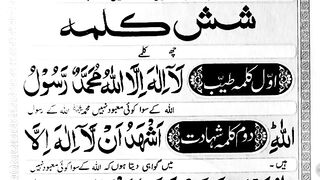 شش کلمہ
چھ کلمے
اوّل کلمہ طیّب لَآ اِلٰہَ اِلَّا اللہُ مُحَمَّدٌ رَّسُوْلُ
اللہ کے سوا کوئی معبود نہیں محمد ﷺ اللہ کے رسول
اللہِ دوم کلمہ شہادت اَشْھَدُ اَنْ لَّآ اِلٰہَ اِلَّا
ہیں۔ میں گواہی دیتا ہوں کہ اللہ کے سوا کوئی معبود نہیں